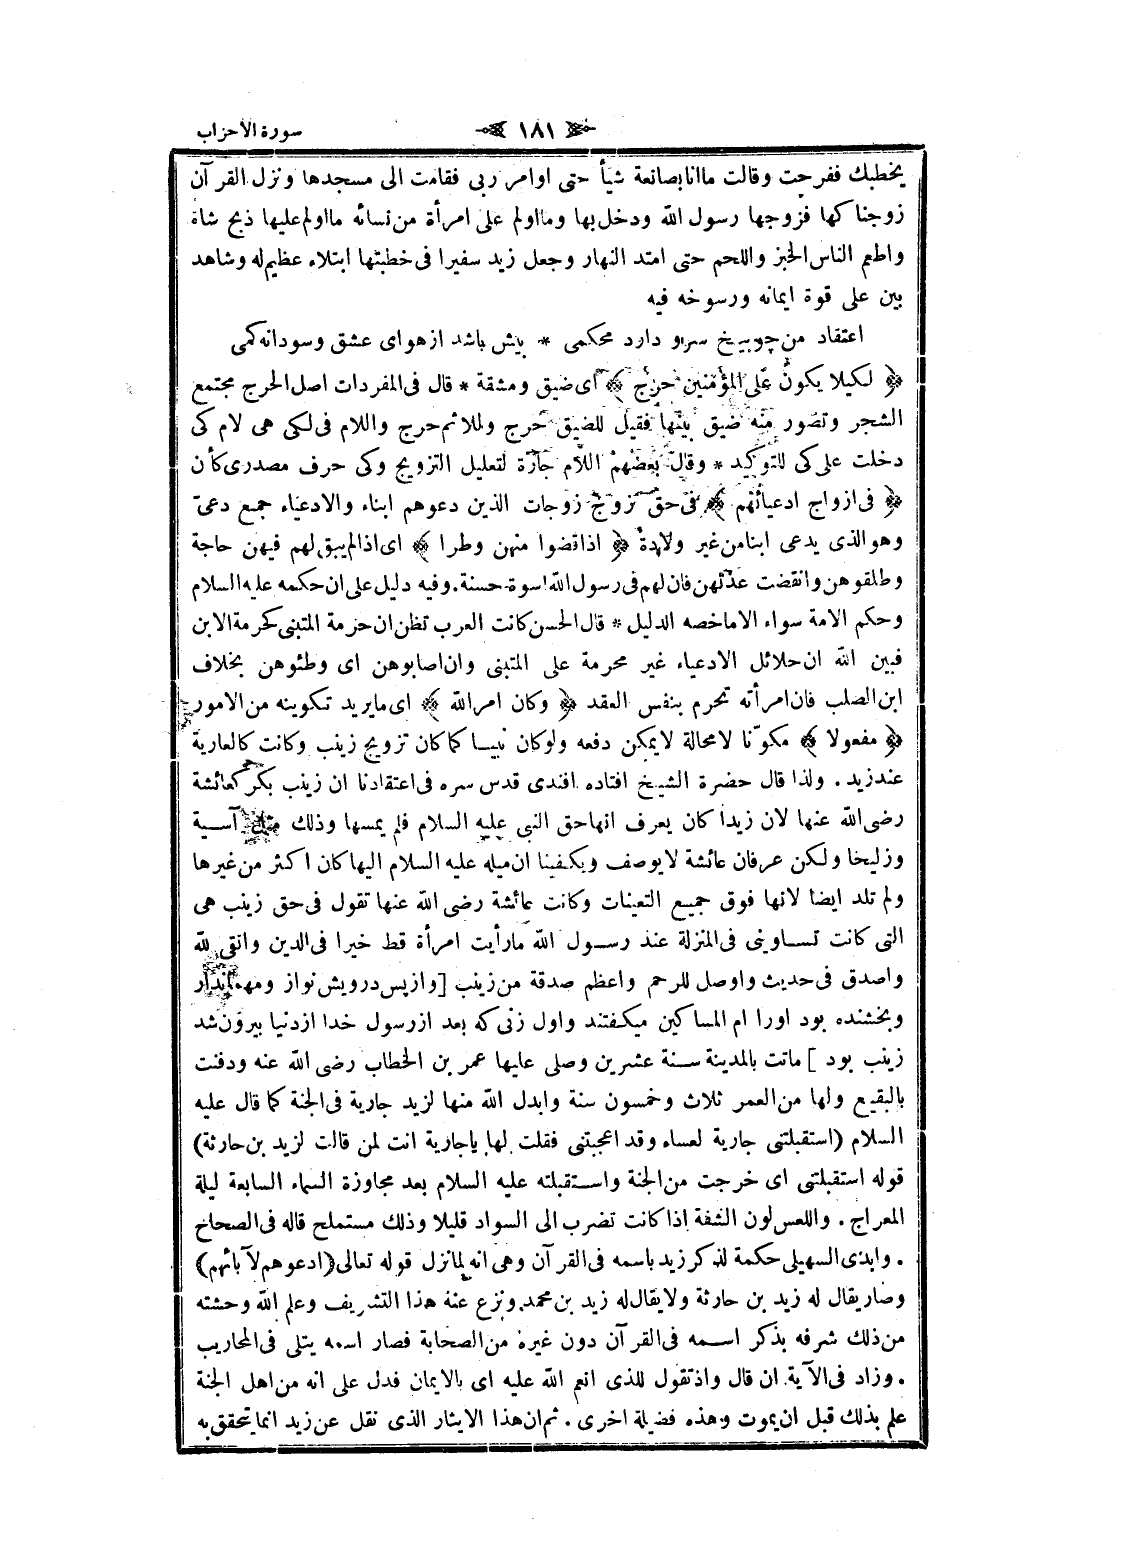 سورة الأحزاب ١٨١
يخطبك ففرحت وقالت ماانا بصانعة شيأ حتى اوامر ربى فقامت الى مسجدها ونزل القرآن
زوجناكها فزوجها رسول الله ودخل بها ومااولم على امرأة من نسائه مااولم عليها ذبح شاة
واطعم الناس الخبز واللحم حتى امتد النهار وجعل زيد سفيرا فى خطبتها ابتلاء عظيم له وشاهد
بين على قوة ايمانه ورسوخه فيه
اعتقاد من چو بيخ سرو دارد محكمى * بيش باشد از هواى عشق وسودانه كمى
﴿ لكيلا يكون على المؤمنين حرج ﴾ اى ضيق ومشقة * قال فى المفردات اصل الحرج مجتمع
الشجر وتصور منه ضيق بينها فقيل للضيق حرج وللاثم حرج واللام فى لكى هى لام كى
دخلت على كى للتوكيد * وقال بعضهم اللام جارّة لتعليل التزويج وكى حرف مصدرى كأن
﴿ فى ازواج ادعيائهم ﴾ فى حق تزوج زوجات الذين دعوهم ابناء والادعياء جمع دعىّ
وهو الذى يدعى ابنا من غير ولادة ﴿ اذا قضوا منهن وطرا ﴾ اى اذالم يبق لهم فيهن حاجة
وطلقوهن وانقضت عدّتهن فان لهم فى رسول الله اسوة حسنة . وفيه دليل على ان حكمه عليه السلام
وحكم الامة سواء الا ماخصه الدليل * قال الحسن كانت العرب تظن ان حرمة المتبنى كحرمة الابن
فبين الله ان حلائل الادعياء غير محرمة على المتبنى وان اصابوهن اى وطئوهن بخلاف
ابن الصلب فان امرأته تحرم بنفس العقد ﴿ وكان امر الله ﴾ اى مايريد تكوينه من الامور
﴿ مفعولا ﴾ مكوّنا لامحالة لايمكن دفعه ولوكان نبيا كما كان تزويج زينب وكانت كالعارية
عند زيد . ولذا قال حضرة الشيخ افتاده افندى قدس سره فى اعتقادنا ان زينب بكر كعائشة
رضى الله عنها لان زيدا كان يعرف انها حق النبى عليه السلام فلم يمسها وذلك مثل آسية
وزليخا ولكن عرفان عائشة لايوصف ويكفينا ان ميله عليه السلام اليها كان اكثر من غيرها
ولم تلد ايضا لانها فوق جميع التعينات وكانت عائشة رضى الله عنها تقول فى حق زينب هى
التى كانت تساوينى فى المنزلة عند رسول الله مارأيت امرأة قط خيرا فى الدين واتقى لله
واصدق فى حديث واوصل للرحم واعظم صدقة من زينب [وازپس درويش نواز ومهماندار
وبخشنده بود اورا ام المساكين ميكفتند واول زنى كه بعد از رسول خدا ازدنيا بيرون شد
زينب بود ] ماتت بالمدينة سنة عشرين وصلى عليها عمر بن الخطاب رضى الله عنه ودفنت
بالبقيع ولها من العمر ثلاث وخمسون سنة وابدل الله منها لزيد جارية فى الجنة كما قال عليه
السلام (استقبلتنى جارية لعساء وقد اعجبتنى فقلت لها ياجارية انت لمن قالت لزيد بن حارثة)
قوله استقبلتنى اى خرجت من الجنة واستقبلته عليه السلام بعد مجاوزة السماء السابعة ليلة
المعراج . واللعس لون الشفة اذا كانت تضرب الى السواد قليلا وذلك مستملح قاله فى الصحاح
. وابدى السهيلى حكمة لذكر زيد باسمه فى القرآن وهى انه لمانزل قوله تعالى (ادعوهم لآبائهم)
وصار يقال له زيد بن حارثة ولايقال له زيد بن محمد ونزع عنه هذا التشريف وعلم الله وحشته
من ذلك شرفه بذكر اسمه فى القرآن دون غيره من الصحابة فصار اسمه يتلى فى المحاريب
. وزاد فى الآية ان قال واذ تقول للذى انعم الله عليه اى بالايمان فدل على انه من اهل الجنة
علم بذلك قبل ان يموت وهذه فضيلة اخرى . ثم ان هذا الايثار الذى نقل عن زيد انما يتحقق به